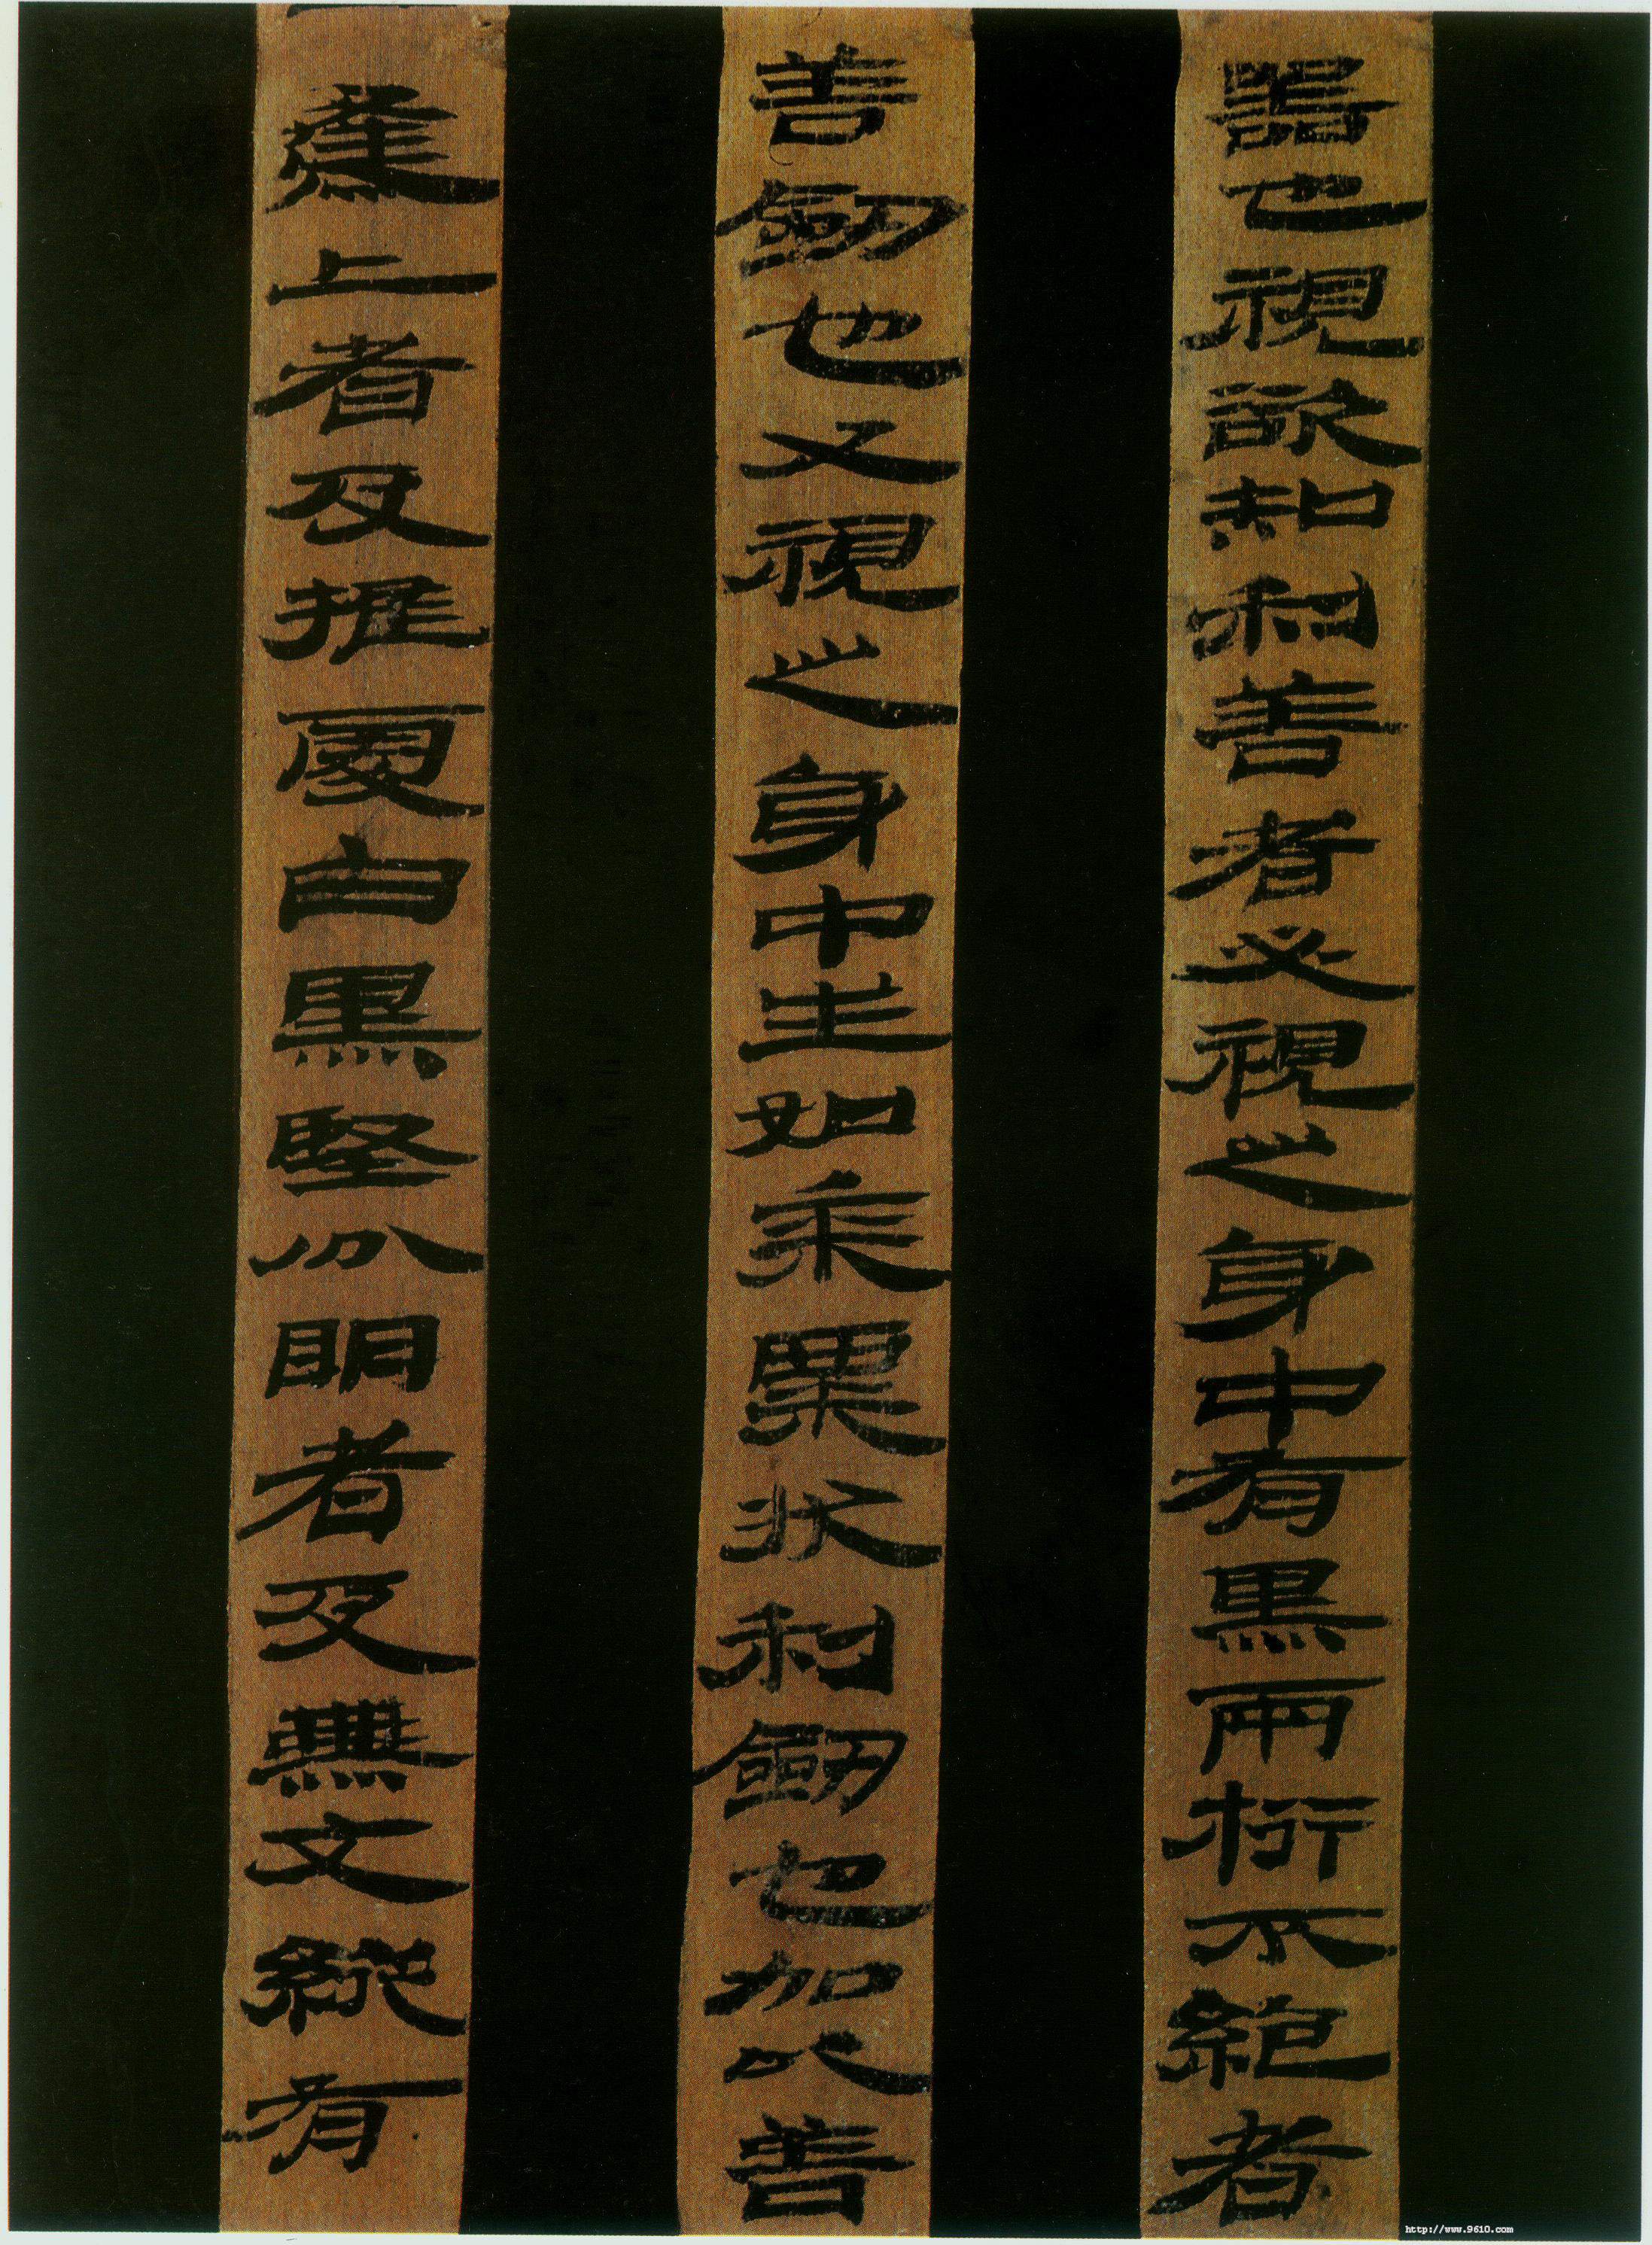 器也視欲知利善者必視之身中有黑兩桁不絕者
善劒也又視之身中生如黍粟狀利劒也加以善
上者及推處白黑堅分明者及無文縱有
http://www.9610.com